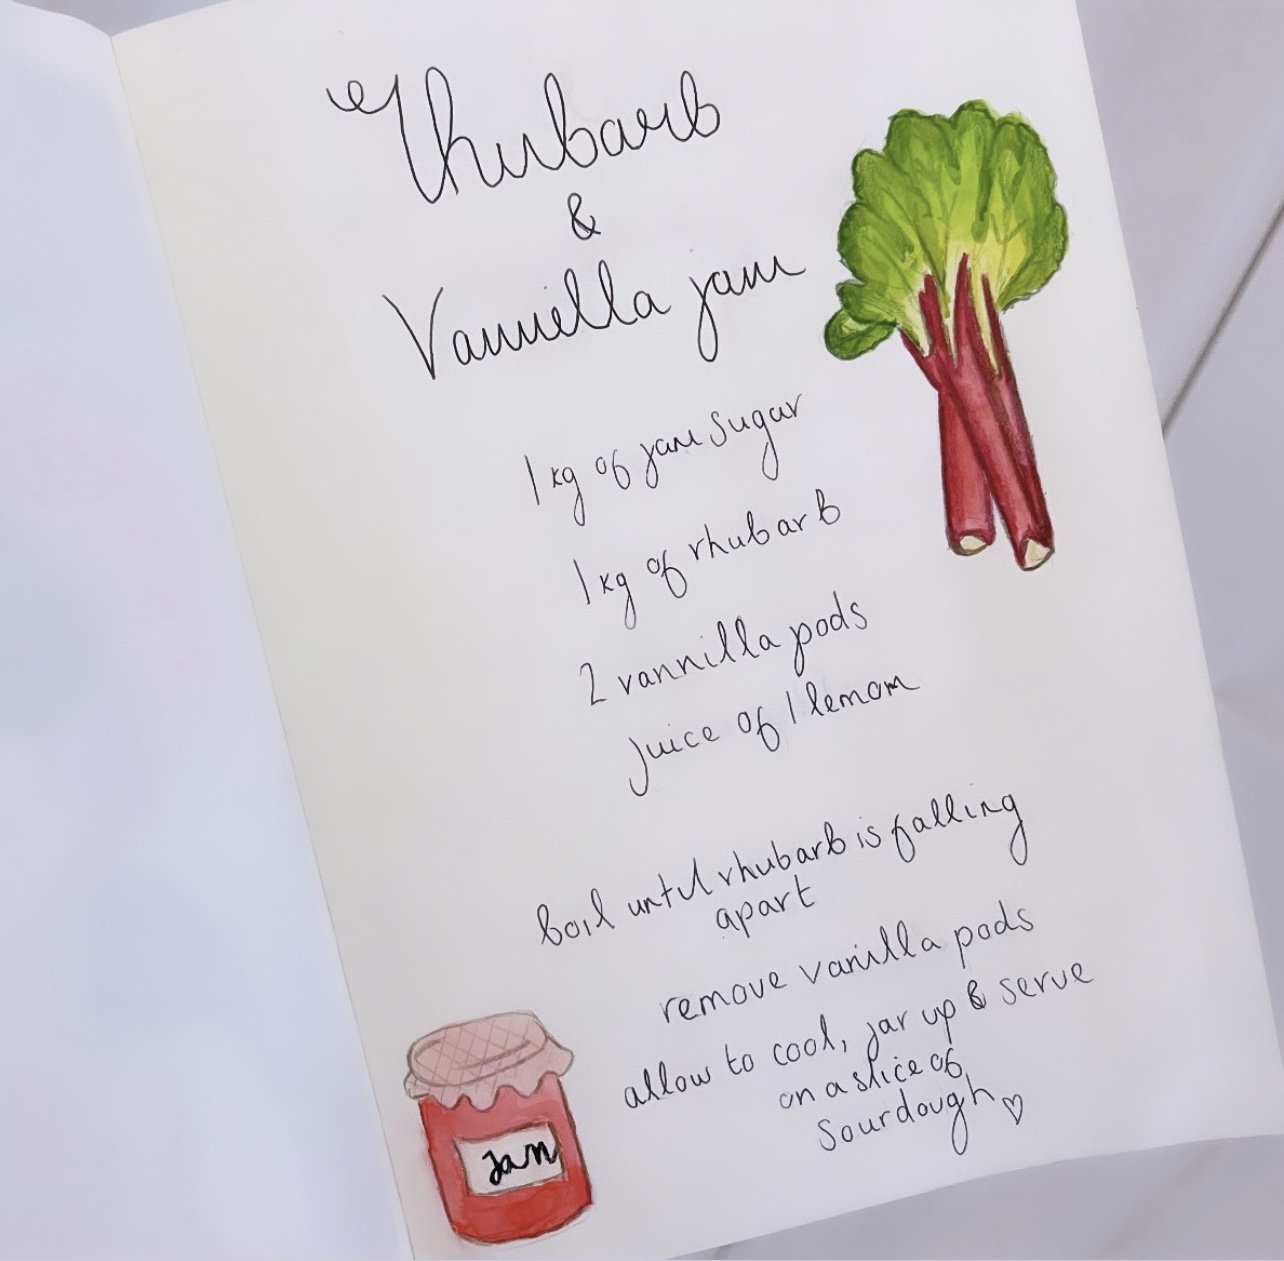 Rhubarb
&
Vannilla jam
1 kg of jam sugar
1 kg of rhubarb
2 vannilla pods
juice of 1 lemon
boil until rhubarb is falling
apart
remove vanilla pods
allow to cool, jar up & serve
on a slice of
Sourdough ♡
Jam